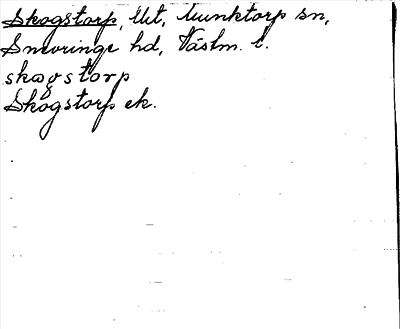 Skogstorp, Ukt, Munktorp sn,
Snevringe hd, Västm. l.
skogstorp
Skogstorp ek.